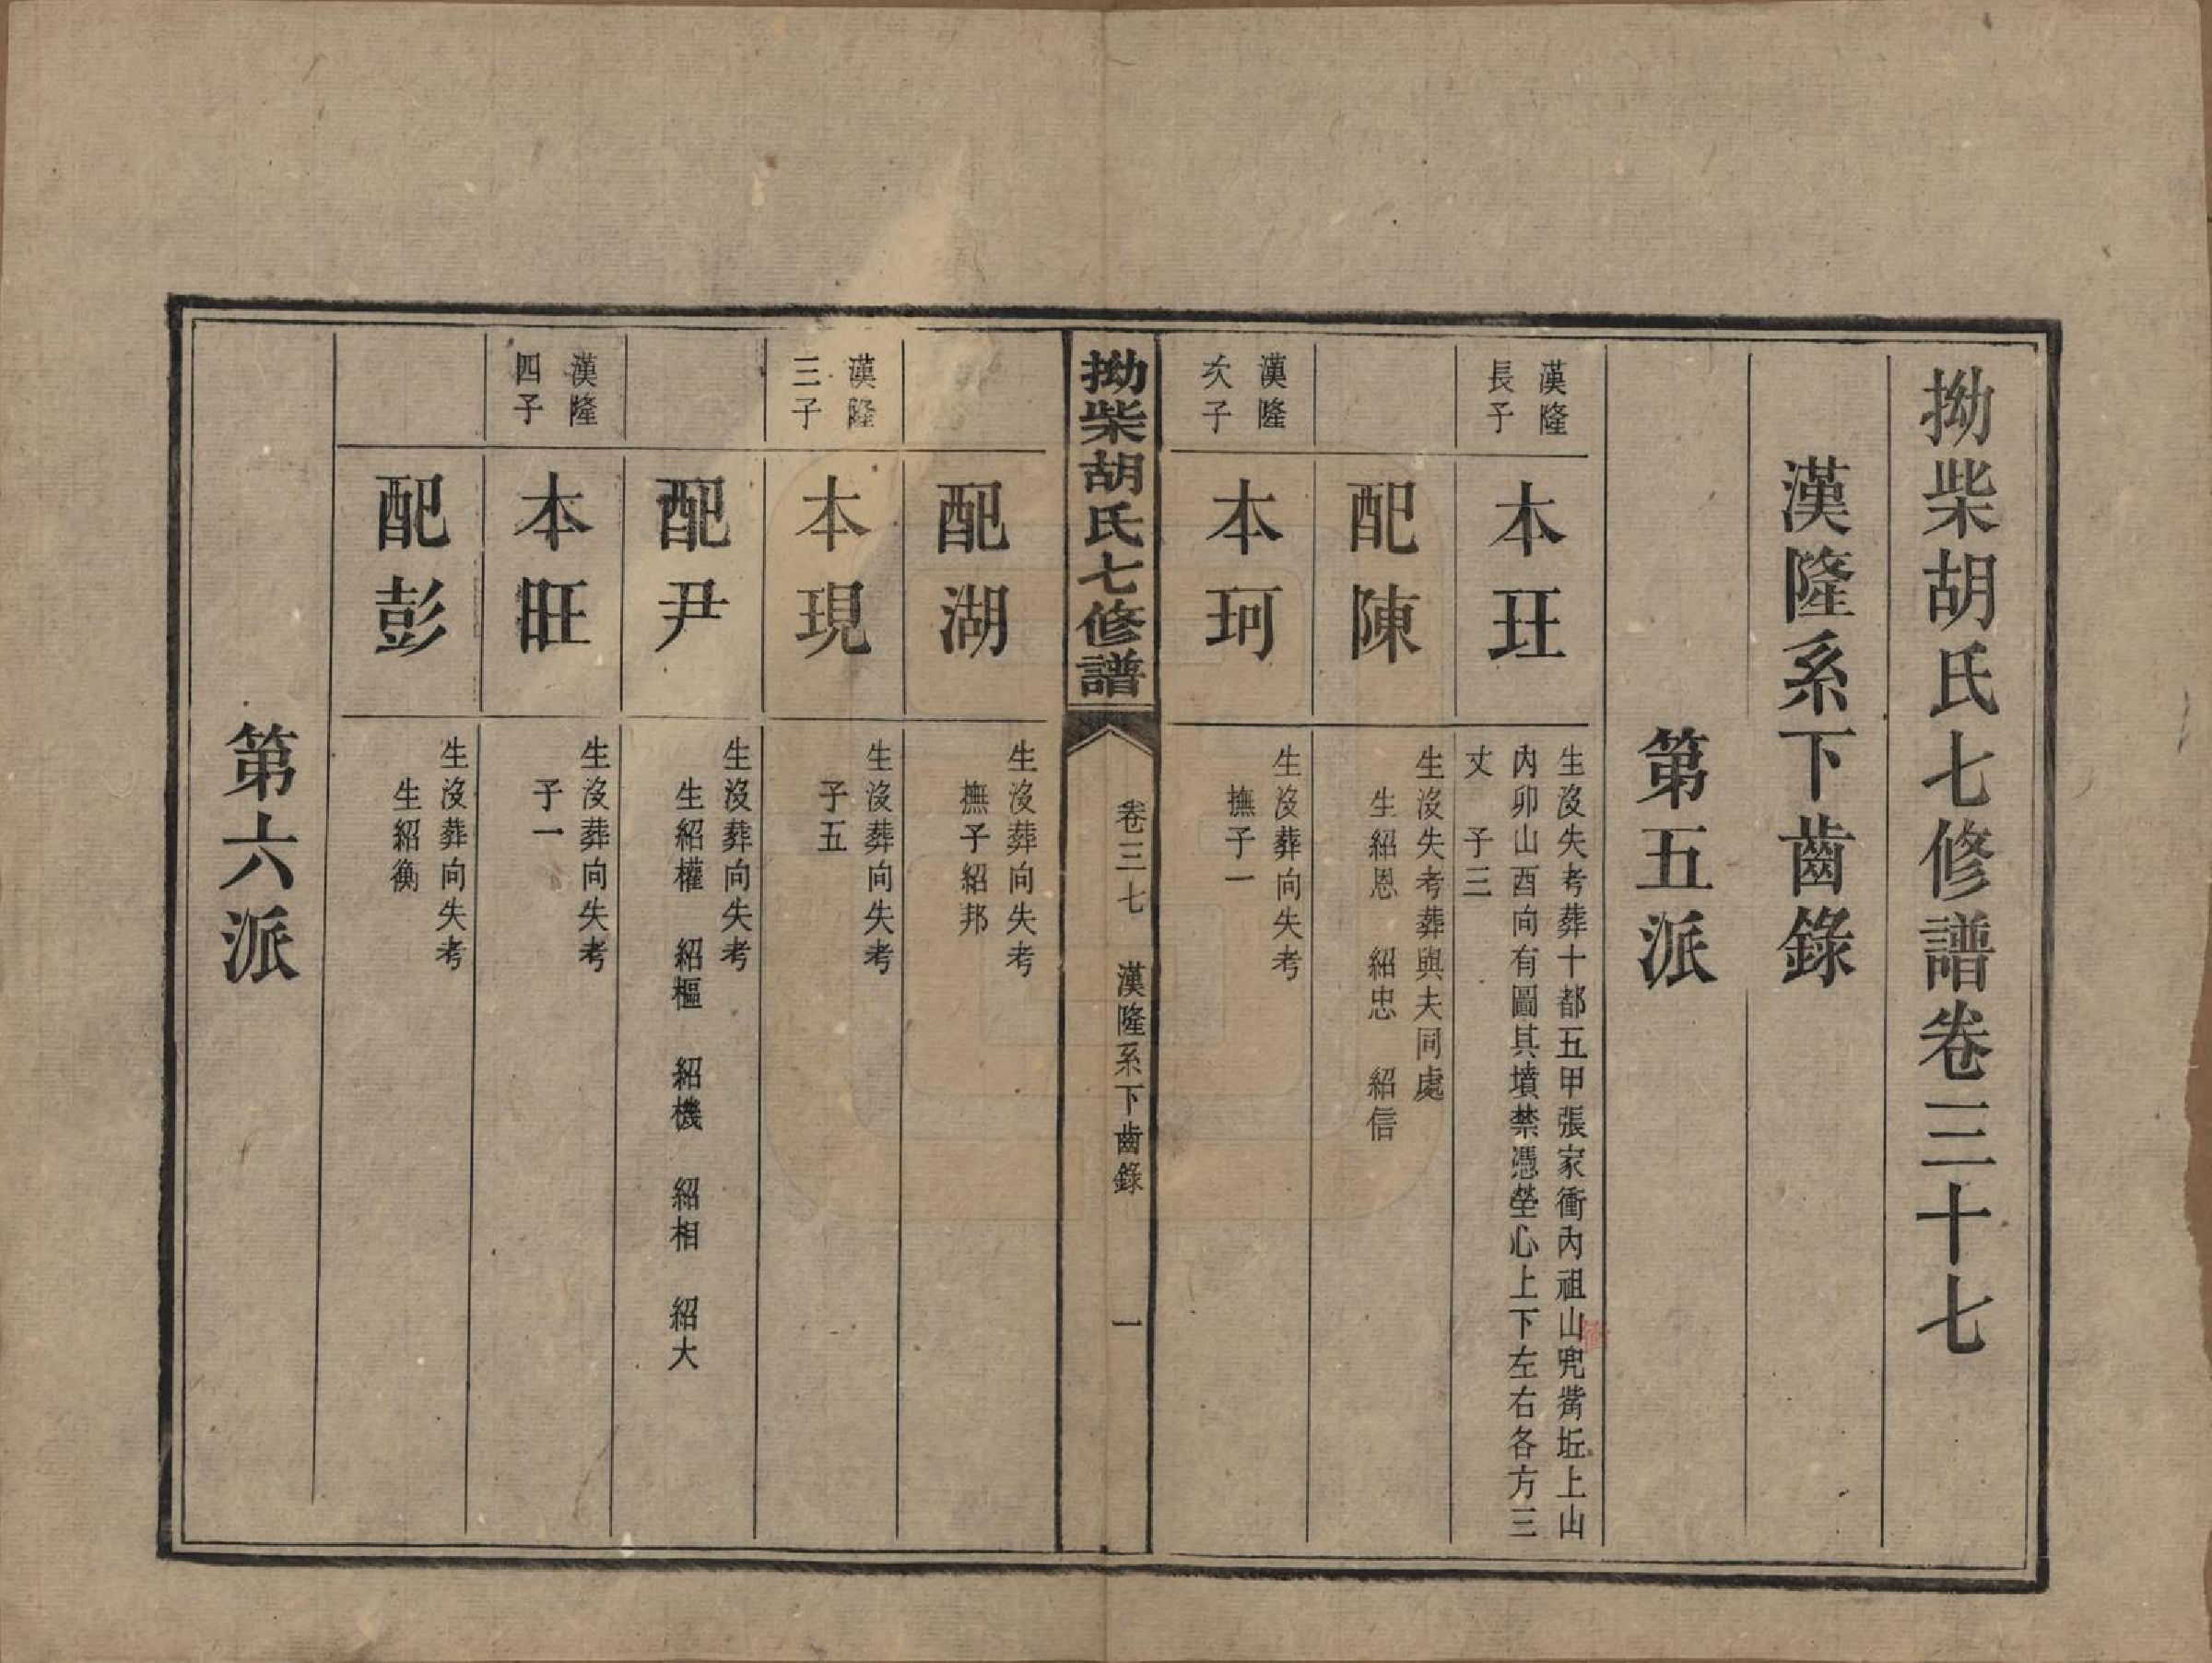 拗柴胡氏七修譜卷三十七
漢隆系下齒錄
第五派
漢隆
長子
本玨
生沒失考葬十都五甲張家衝內祖山兜嘴坵上山
內卯山酉向有圖其墳禁憑塋心上下左右各方三
丈　子三
配陳
生沒失考葬與夫同處
生紹恩　紹忠　紹信
漢隆
次子
本珂
生沒葬向失考
撫子一
拗柴胡氏七修譜
卷三七　漢隆系下齒錄　一
配湖
生沒葬向失考
撫子紹邦
漢隆
三子
本現
生沒葬向失考
子五
配尹
生沒葬向失考
生紹權　紹樞　紹機　紹相　紹大
漢隆
四子
本旺
生沒葬向失考
子一
配彭
生沒葬向失考
生紹衡
第六派